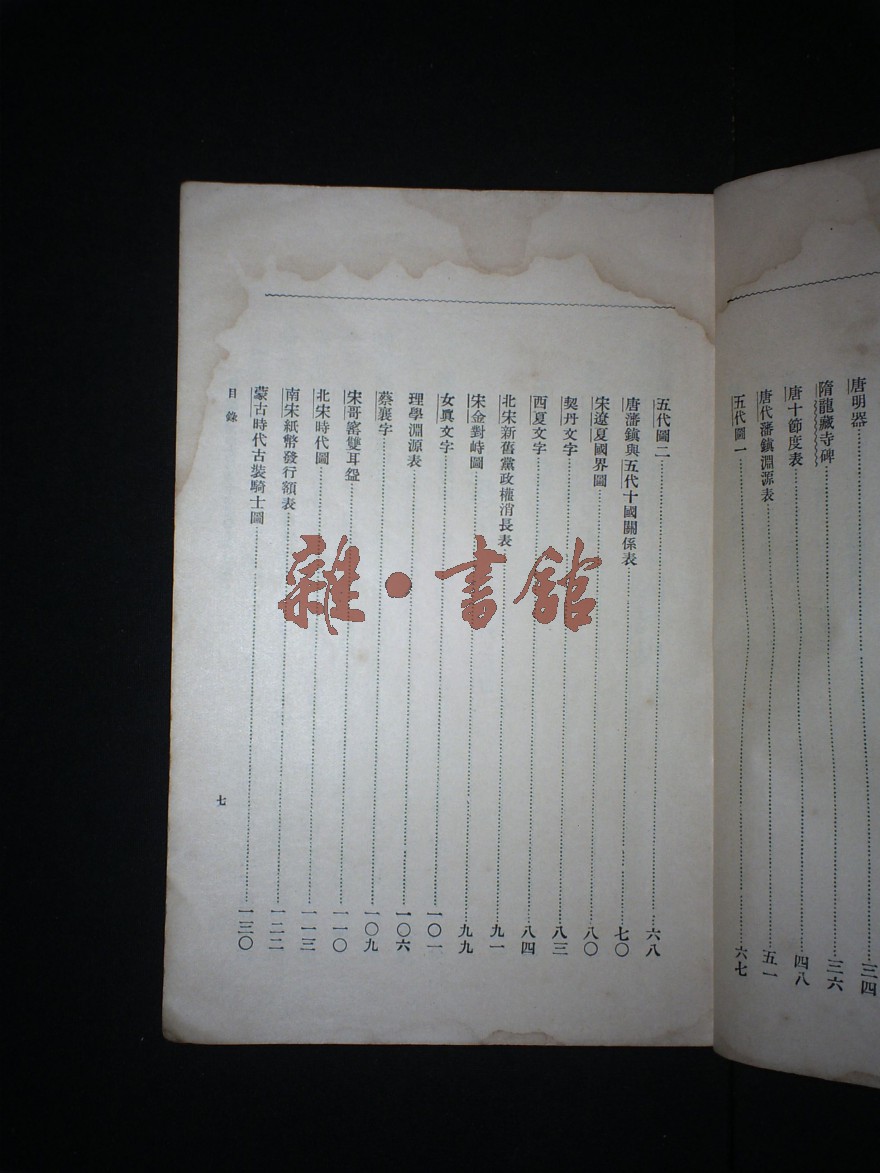 唐明器……三四
隋龍藏寺碑……三六
唐十節度表……四八
唐代藩鎭淵源表……五一
五代圖一……六七
五代圖二……六八
唐藩鎭與五代十國關係表……七〇
宋遼夏國界圖……八〇
契丹文字……八三
西夏文字……八四
北宋新舊黨政權消長表……九一
宋金對峙圖……九九
女眞文字……一〇一
理學淵源表……一〇六
蔡襄字……一〇九
宋哥窰雙耳盌……一一〇
北宋時代圖……一一三
南宋紙幣發行額表……一二二
蒙古時代古裝騎士圖……一三〇
目錄
七
雜·書館